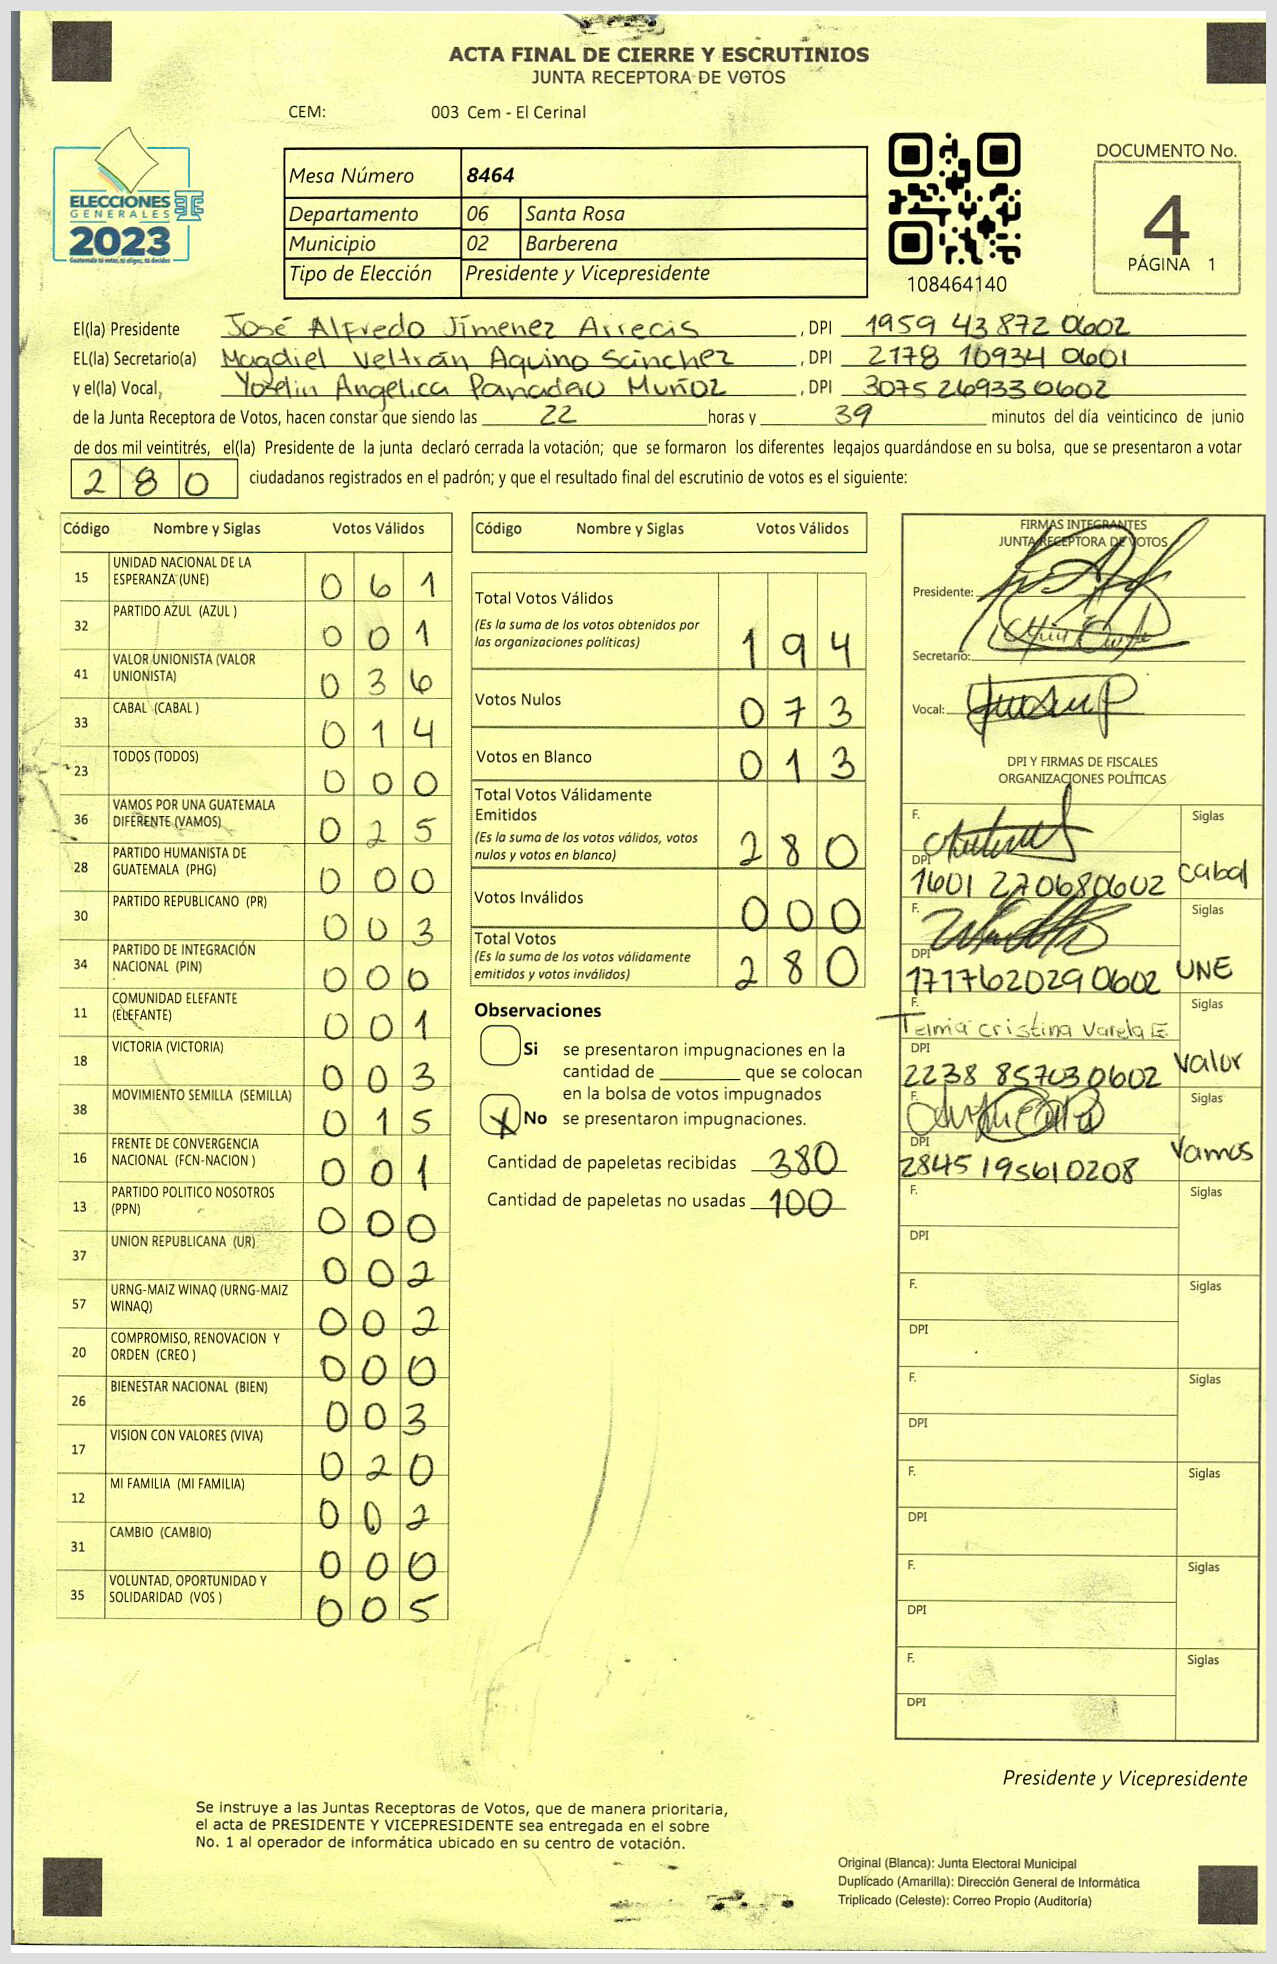 ACTA FINAL DE CIERRE Y ESCRUTINIOS
JUNTA RECEPTORA DE VOTOS
CEM: 003 Cem - El Cerinal
ELECCIONES
GENERALES
2023
Guatemala tú votas, tú eliges, tú decides
Mesa Número 8464
Departamento 06 Santa Rosa
Municipio 02 Barberena
Tipo de Elección Presidente y Vicepresidente
108464140
DOCUMENTO No.
4
PÁGINA 1
El(la) Presidente José Alfredo Jímenez Arrecis , DPI 1959 43872 0602
EL(la) Secretario(a) Magdiel Veltrán Aquino Sánchez , DPI 2178 10934 0601
y el(la) Vocal, Yoselin Angélica Panadero Muñoz , DPI 3075 26933 0602
de la Junta Receptora de Votos, hacen constar que siendo las 22 horas y 39 minutos del día veinticinco de junio
de dos mil veintitrés, el(la) Presidente de la junta declaró cerrada la votación; que se formaron los diferentes legajos guardándose en su bolsa, que se presentaron a votar
280 ciudadanos registrados en el padrón; y que el resultado final del escrutinio de votos es el siguiente:
Código Nombre y Siglas Votos Válidos
15 UNIDAD NACIONAL DE LA ESPERANZA (UNE) 061
32 PARTIDO AZUL (AZUL ) 001
41 VALOR UNIONISTA (VALOR UNIONISTA) 036
33 CABAL (CABAL ) 014
23 TODOS (TODOS) 000
36 VAMOS POR UNA GUATEMALA DIFERENTE (VAMOS) 025
28 PARTIDO HUMANISTA DE GUATEMALA (PHG) 000
30 PARTIDO REPUBLICANO (PR) 003
34 PARTIDO DE INTEGRACIÓN NACIONAL (PIN) 000
11 COMUNIDAD ELEFANTE (ELEFANTE) 001
18 VICTORIA (VICTORIA) 003
38 MOVIMIENTO SEMILLA (SEMILLA) 015
16 FRENTE DE CONVERGENCIA NACIONAL (FCN-NACION ) 001
13 PARTIDO POLITICO NOSOTROS (PPN) 000
37 UNION REPUBLICANA (UR) 002
57 URNG-MAIZ WINAQ (URNG-MAIZ WINAQ) 002
20 COMPROMISO, RENOVACION Y ORDEN (CREO ) 000
26 BIENESTAR NACIONAL (BIEN) 003
17 VISION CON VALORES (VIVA) 020
12 MI FAMILIA (MI FAMILIA) 002
31 CAMBIO (CAMBIO) 000
35 VOLUNTAD, OPORTUNIDAD Y SOLIDARIDAD (VOS ) 005
Código Nombre y Siglas Votos Válidos
Total Votos Válidos
(Es la suma de los votos obtenidos por
las organizaciones políticas) 194
Votos Nulos 073
Votos en Blanco 013
Total Votos Válidamente
Emitidos
(Es la suma de los votos válidos, votos
nulos y votos en blanco) 280
Votos Inválidos 000
Total Votos
(Es la suma de los votos válidamente
emitidos y votos inválidos) 280
Observaciones
Si se presentaron impugnaciones en la
cantidad de ________ que se colocan
en la bolsa de votos impugnados
X No se presentaron impugnaciones.
Cantidad de papeletas recibidas 380
Cantidad de papeletas no usadas 100
FIRMAS INTEGRANTES
JUNTA RECEPTORA DE VOTOS
Presidente:
Secretario:
Vocal:
DPI Y FIRMAS DE FISCALES
ORGANIZACIONES POLÍTICAS
F. Siglas
DPI
1601 27068 0602 Cabal
F. Siglas
DPI
1717 62029 0602 UNE
F. Siglas
Telma Cristina Varela E
DPI
2238 85703 0602 Valor
F. Siglas
DPI
2845 19561 0208 Vamos
F. Siglas
DPI
F. Siglas
DPI
F. Siglas
DPI
F. Siglas
DPI
F. Siglas
DPI
F. Siglas
DPI
Presidente y Vicepresidente
Se instruye a las Juntas Receptoras de Votos, que de manera prioritaria,
el acta de PRESIDENTE Y VICEPRESIDENTE sea entregada en el sobre
No. 1 al operador de informática ubicado en su centro de votación.
Original (Blanca): Junta Electoral Municipal
Duplicado (Amarilla): Dirección General de Informática
Triplicado (Celeste): Correo Propio (Auditoría)